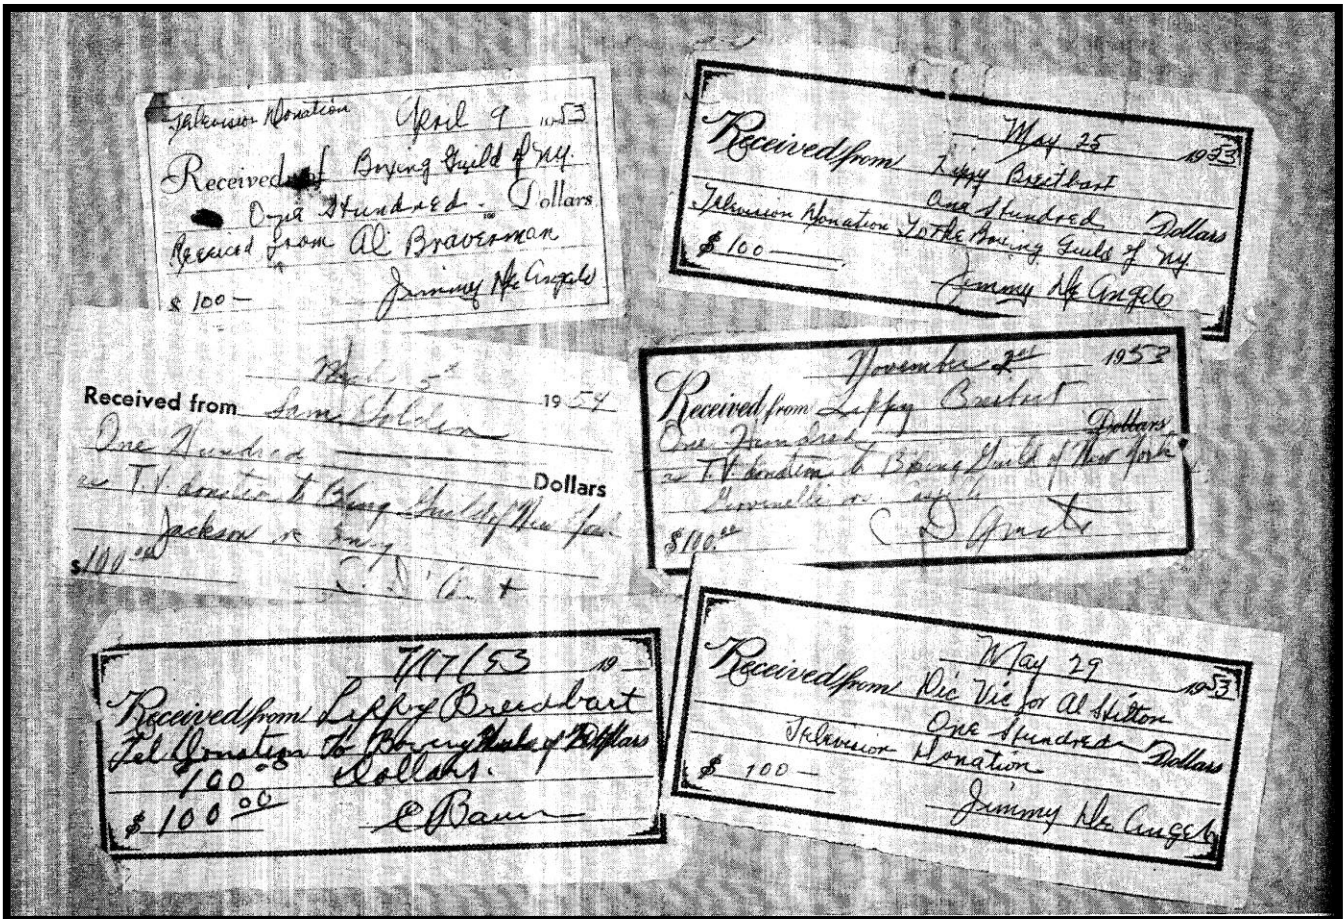 Television Donation
April 9 1953
Received of Boxing Guild of NY.
One Hundred. Dollars
Received from Al Braverman
$ 100 — Jimmy De Angelo
May 25 1953
Received from Lippy Breitbart
One Hundred Dollars
Television Donation To the Boxing Guild of NY
$ 100 —
Jimmy De Angelo
March 5th 1954
Received from Sam Golden
One Hundred Dollars
as T.V. donation to Boxing Guild of New York
Jackson vs
$100.00
November 2nd 1953
Received from Lippy Breitbart
One Hundred Dollars
as T.V. donation to Boxing Guild of New York
Giovanelli vs
$100.00 C D'Amato
7/17/53 19
Received from Lippy Breidbart
Tel Donation To Boxing Guild of Dollars
100.00 Dollars.
$ 100.00 C Baum
May 29 1953
Received from Vic for Al Hilton
One Hundred Dollars
Television Donation
$ 100 —
Jimmy De Angelo